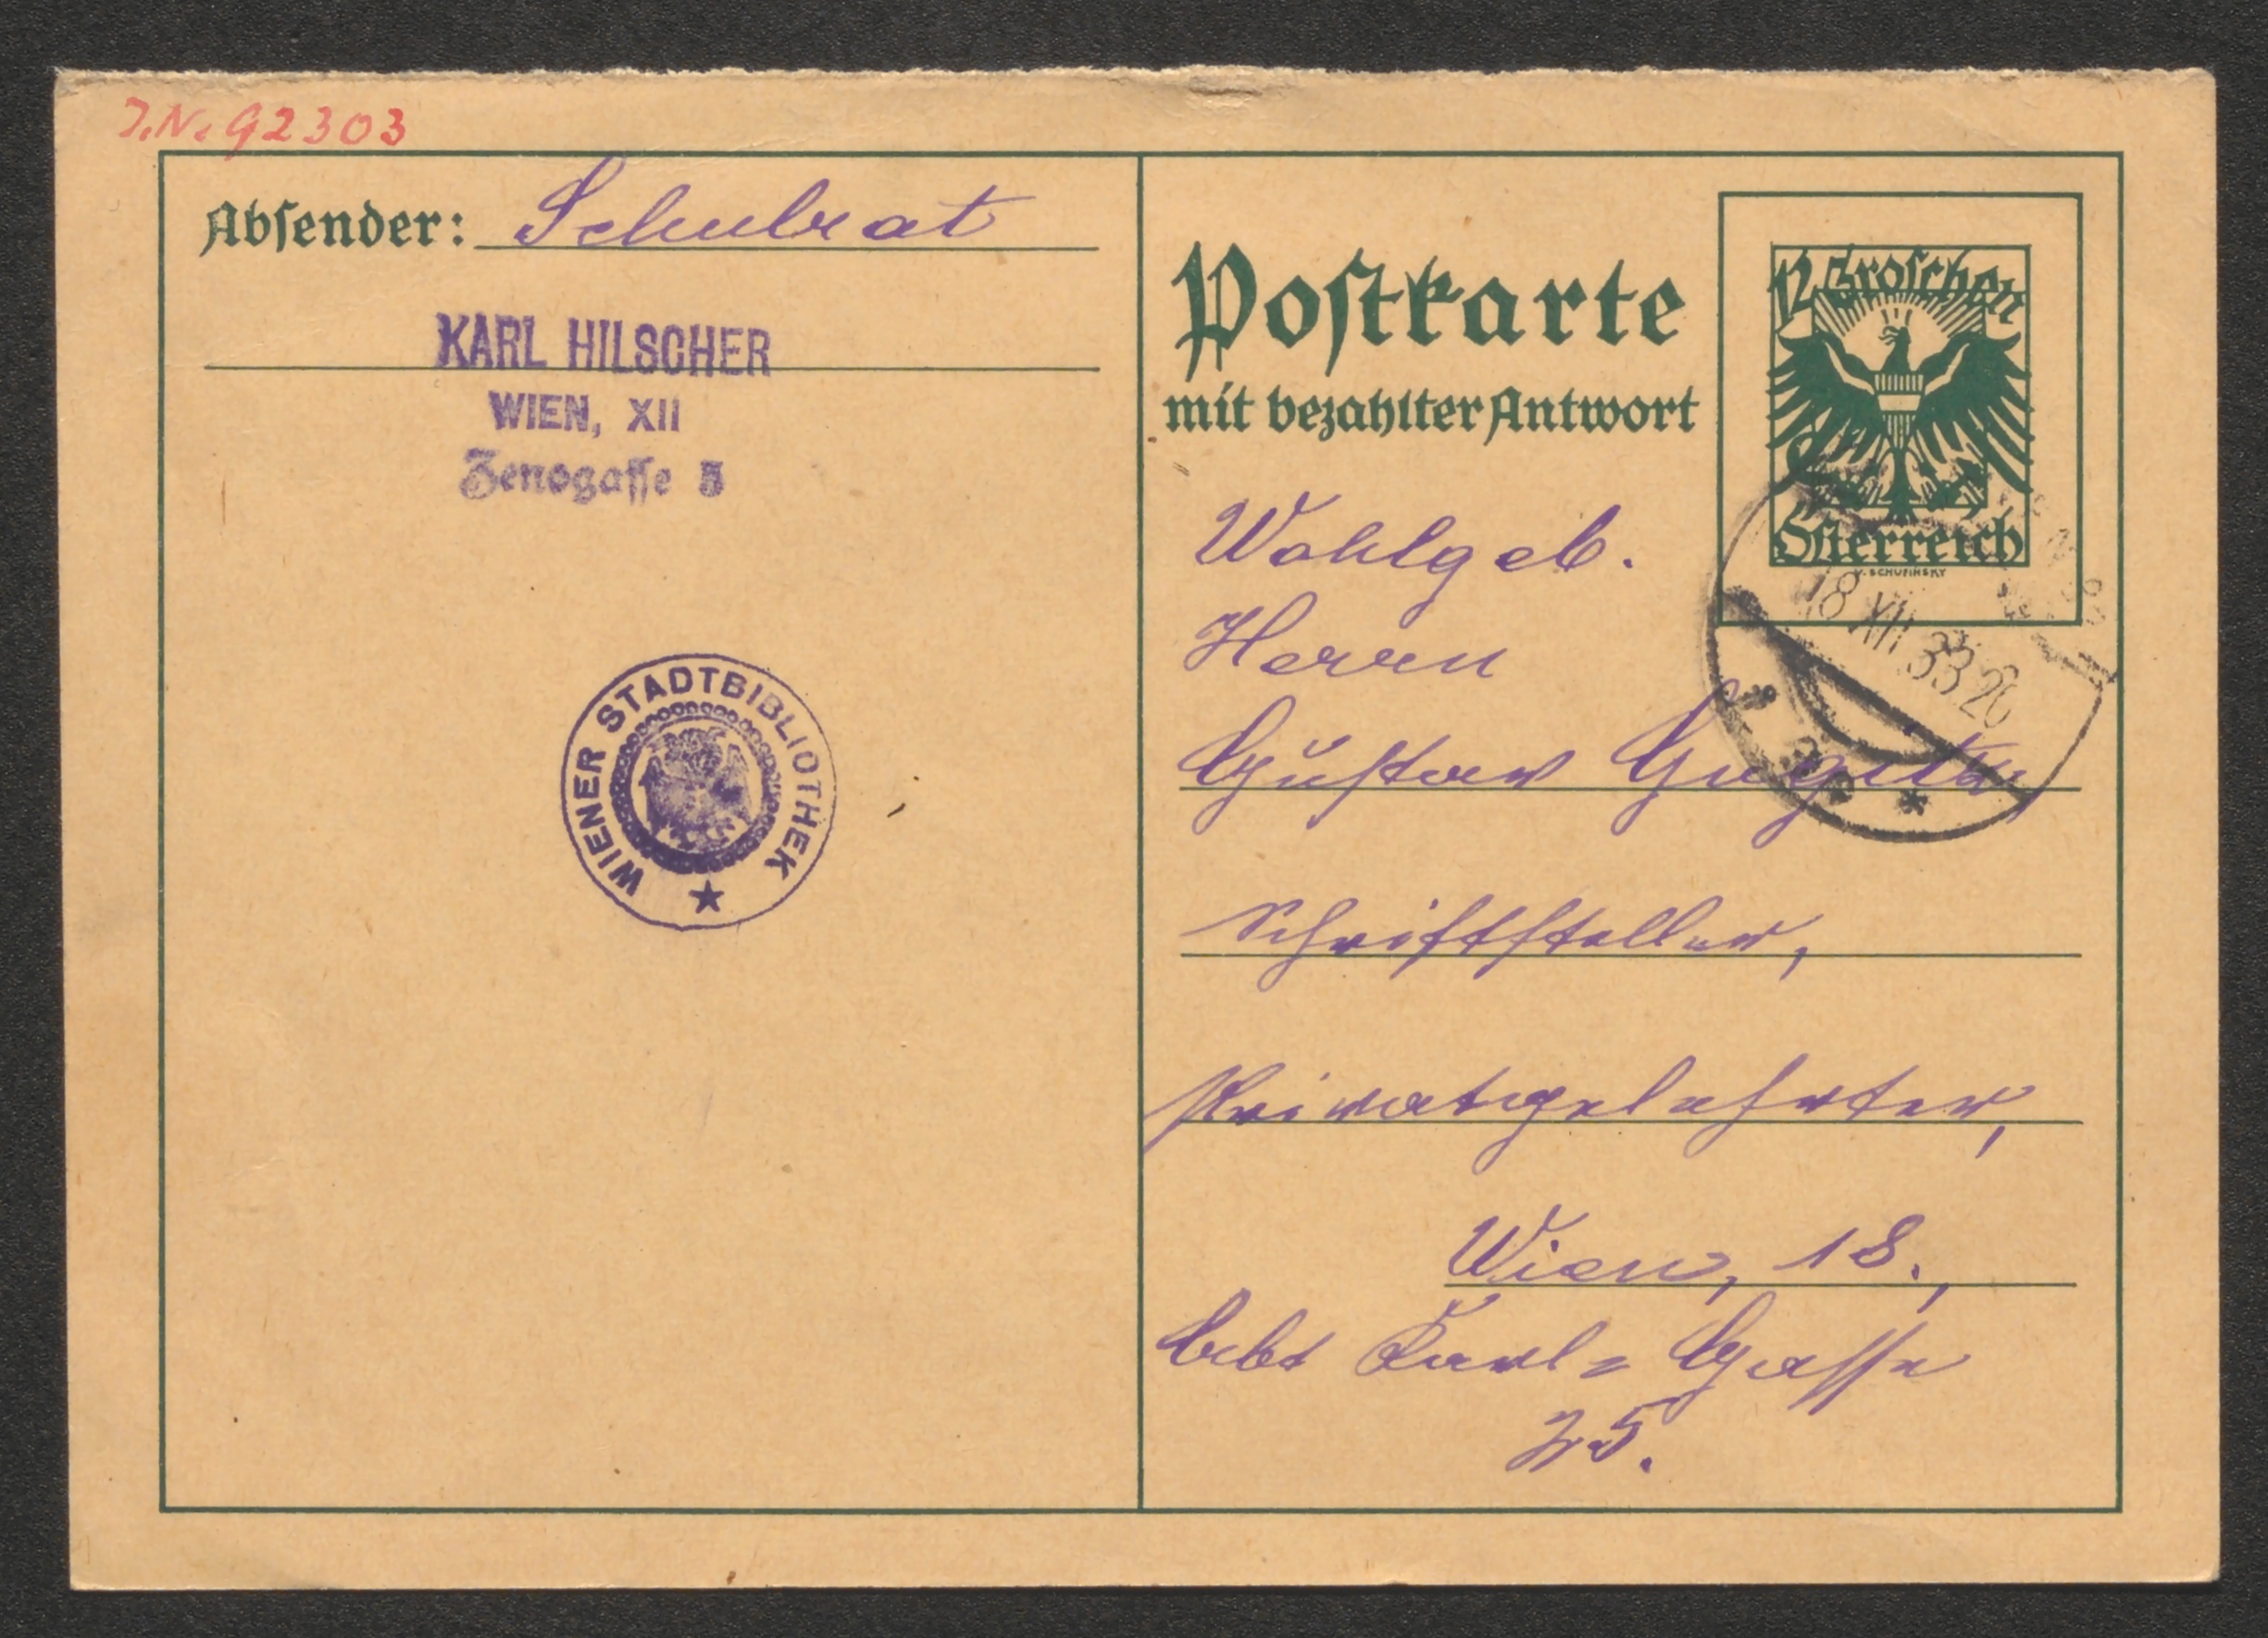 J.N. 92303
Absender: Schulrat
KARL HILSCHER
WIEN, XII
Zenogasse 5
WIENER STADTBIBLIOTHEK
Postkarte
mit bezahlter Antwort
12 Groschen
Österreich
18 XII 33 20
Wohlgeb.
Herrn
Gustav Gugitz
Schriftsteller,
Privatgelehrter,
Wien, 18.,
Karl-Gasse
25.